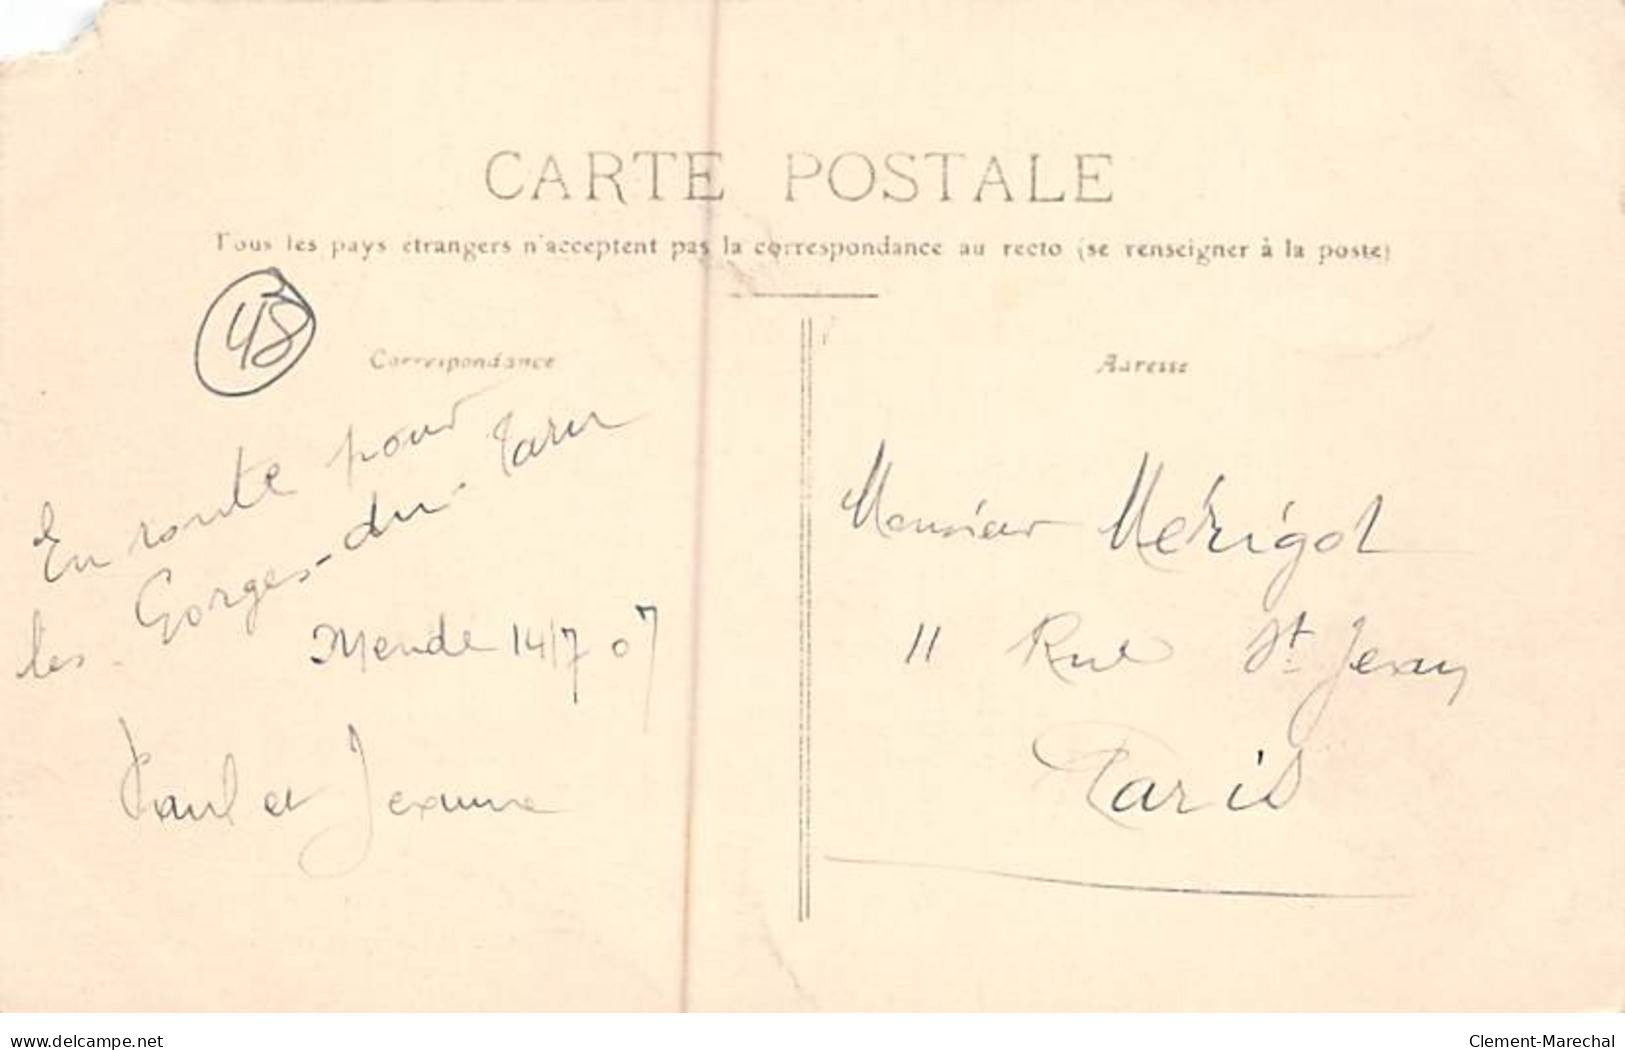 CARTE POSTALE
Tous les pays étrangers n'acceptent pas la correspondance au recto (se renseigner à la poste)
48
Correspondance
En route pour
les Gorges-du-Tarn
Mende 14/7 07
Paul et Jeanne
Adresse
Monsieur Mérigot
11 Rue St. Jean
Paris
www.delcampe.net
Clement-Marechal